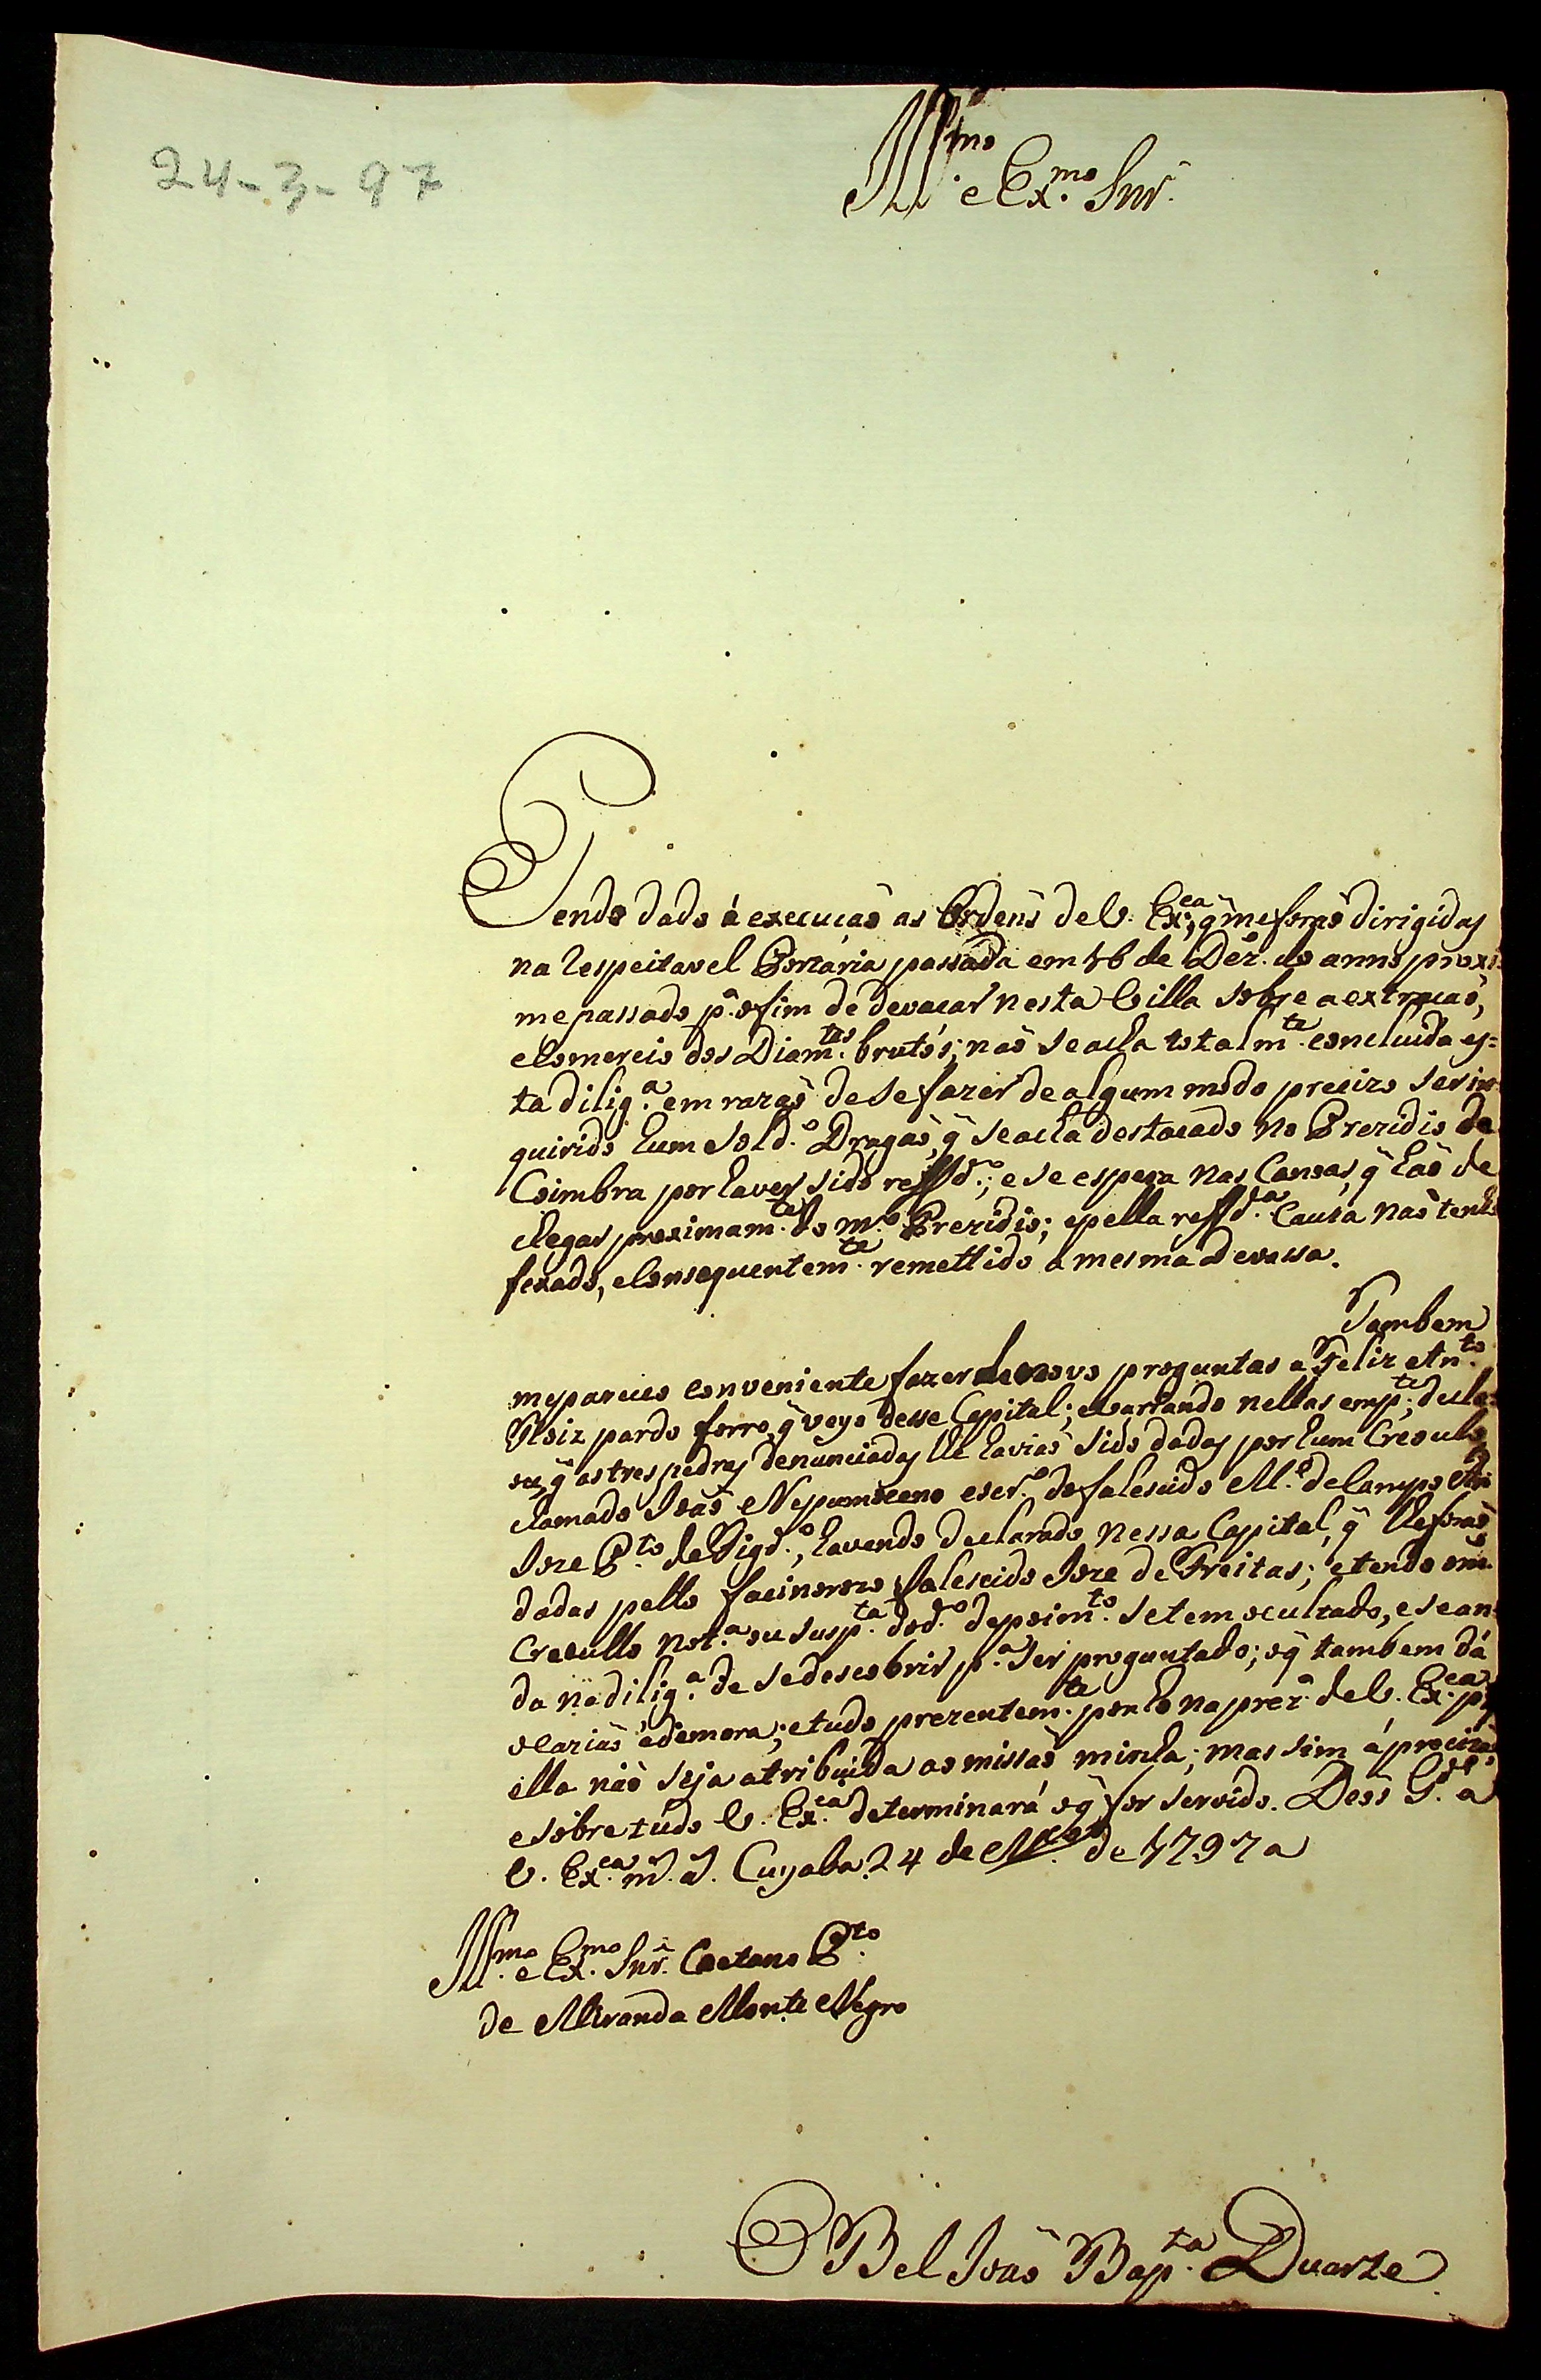 24-3-97
Ill.mo e Ex.mo Snr.
Tendo dado á execuçaõ as Ordens de V. Ex.cia, q̃ me foraõ dirigidas
na respeitavel Portaria passada em 16 de Dez.o do anno proxi=
me passado p.a o fim de devaçar nesta Villa sobre a extracaõ,
e Comercio dos Diam.tes brutos; naõ se acha totalm.te concluida es=
ta dilig.a em razaõ de se fazer de algum modo precizo ser in=
quirido hum Sold.o Dragaõ, q̃ se acha destacado no Prezidio de
Coimbra por haver sido reffd.o; e se espera nas Canoas, q̃ haõ de
chegar proximam.te do m.o Prezidio; e pella reffd.a Cauza naõ tenho
fexado, e Consequentem.te remettido a mesma Devassa.
Tambem
me pareceo conveniente fazer de novo preguntas a Feliz Ant.to
Roiz pardo forro, q̃ veyo desse Capital; e variando nellas em p.te, decla=
rou, q̃ as tres pedras denunciadas lhe haviaõ sido dadas por hum Creoulo
chamado Joaõ Nepumoceno escr.o do falescido M.e de Campo An.to
Joze P.to de Figd.o, havendo declarado nessa Capital, q̃ lhe foraõ
dadas pello facinorozo falescido Joze de Freitas; e tendo o m.o
Creoullo not.a ou susp.ta do d.o depoim.to se tem ocultado, e se an=
da na dilig.a de se descobrir p.a ser preguntado; o q̃ tambem dá
ocaziaõ á demora; e tudo prezentem.te ponho na prez.a de V. Ex.cia p.q̃
ella naõ seja atribuida a omissaõ minha; mas sim á precizaõ;
e sobre tudo V. Ex.cia determinará o q̃ for servido. Deos G.de a
V. Ex.cia m.s a.s Cuyaba 24 de M.co de 1797 a
Ill.mo e Ex.mo Snr. Caetano P.to
de Miranda Monte Negro
O Bel Joaõ Bap.ta Duarte